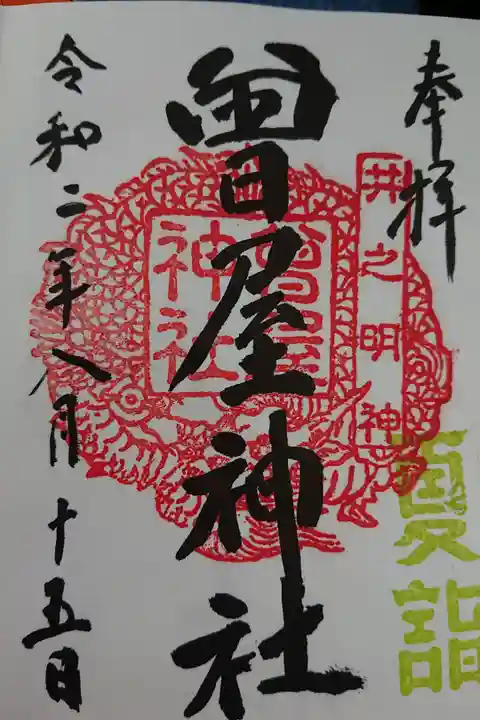 奉拝
井之明神
夏詣
曽屋神社
曽屋
神社
令和二年八月十五日